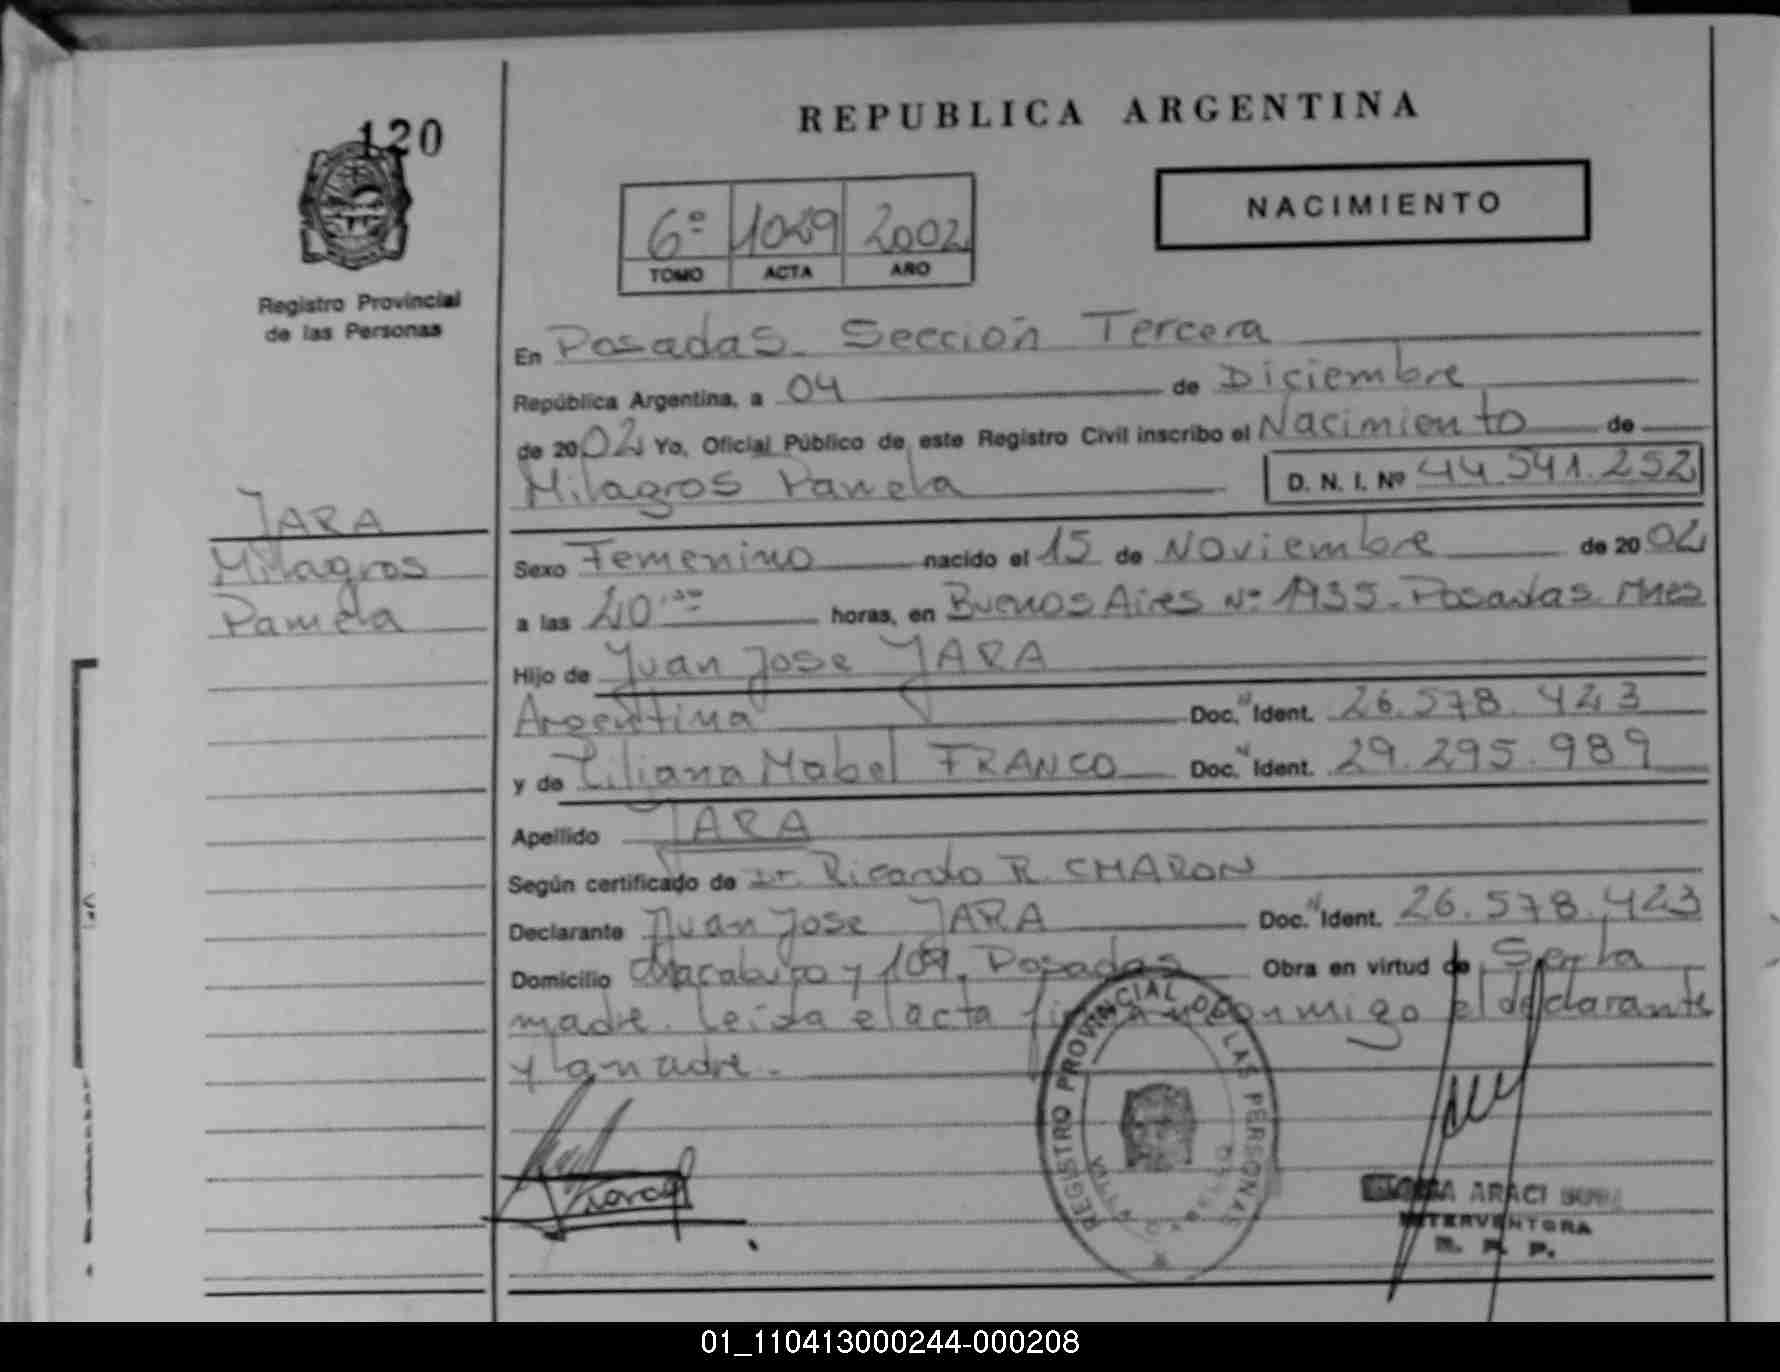 120
REPUBLICA ARGENTINA
NACIMIENTO
6º 1029 2002
TOMO ACTA AÑO
Registro Provincial
de las Personas
En Posadas. Sección Tercera
República Argentina, a 04 de Diciembre
de 2002 Yo, Oficial Público de este Registro Civil inscribo el Nacimiento de
Milagros Pamela D. N. I. Nº 44.541.252
JARA
Milagros
Pamela
Sexo Femenino nacido el 15 de Noviembre de 2002
a las horas, en Buenos Aires Nº 1935. Posadas. Mnes
Hijo de Juan Jose JARA
Argentina Doc. N Ident. 26.578.423
y de Liliana Mabel FRANCO Doc. N Ident. 29.295.989
Apellido JARA
Según certificado de Dr. Ricardo R. CHARON
Declarante Juan Jose JARA Doc. N Ident. 26.578.423
Domicilio Chacabuco y 109. Posadas Obra en virtud de Ser la
madre. Leida el acta firman conmigo el declarante
y la madre.
REGISTRO PROVINCIAL DE LAS PERSONAS
ARACI
INTERVENTORA
R. P. P.
01_110413000244-000208